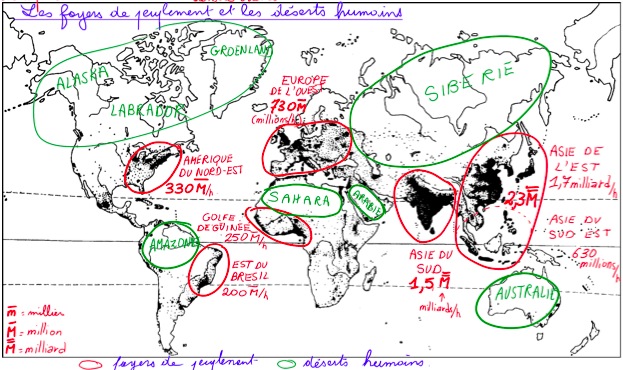 Les foyers de peuplement et les déserts humains
GROENLAND
ALASKA
LABRADOR
EUROPE
DE L'OUEST
730 M̄
(millions/h)
SIBERIE
AMÉRIQUE
DU NORD-EST
330 M̄/h
ASIE DE
L'EST
1,7 milliard/h
2,3 M̿
SAHARA
ARABIE
GOLFE
DE GUINEE
250 M/h
ASIE DU
SUD EST
630
millions/h
AMAZONIE
EST DU
BRESIL
200 M̄/h
ASIE DU
SUD
1,5 M̿
milliards/h
AUSTRALIE
m̄ = millier
M̄ = million
M̿ = milliard
foyers de peuplement
déserts humains